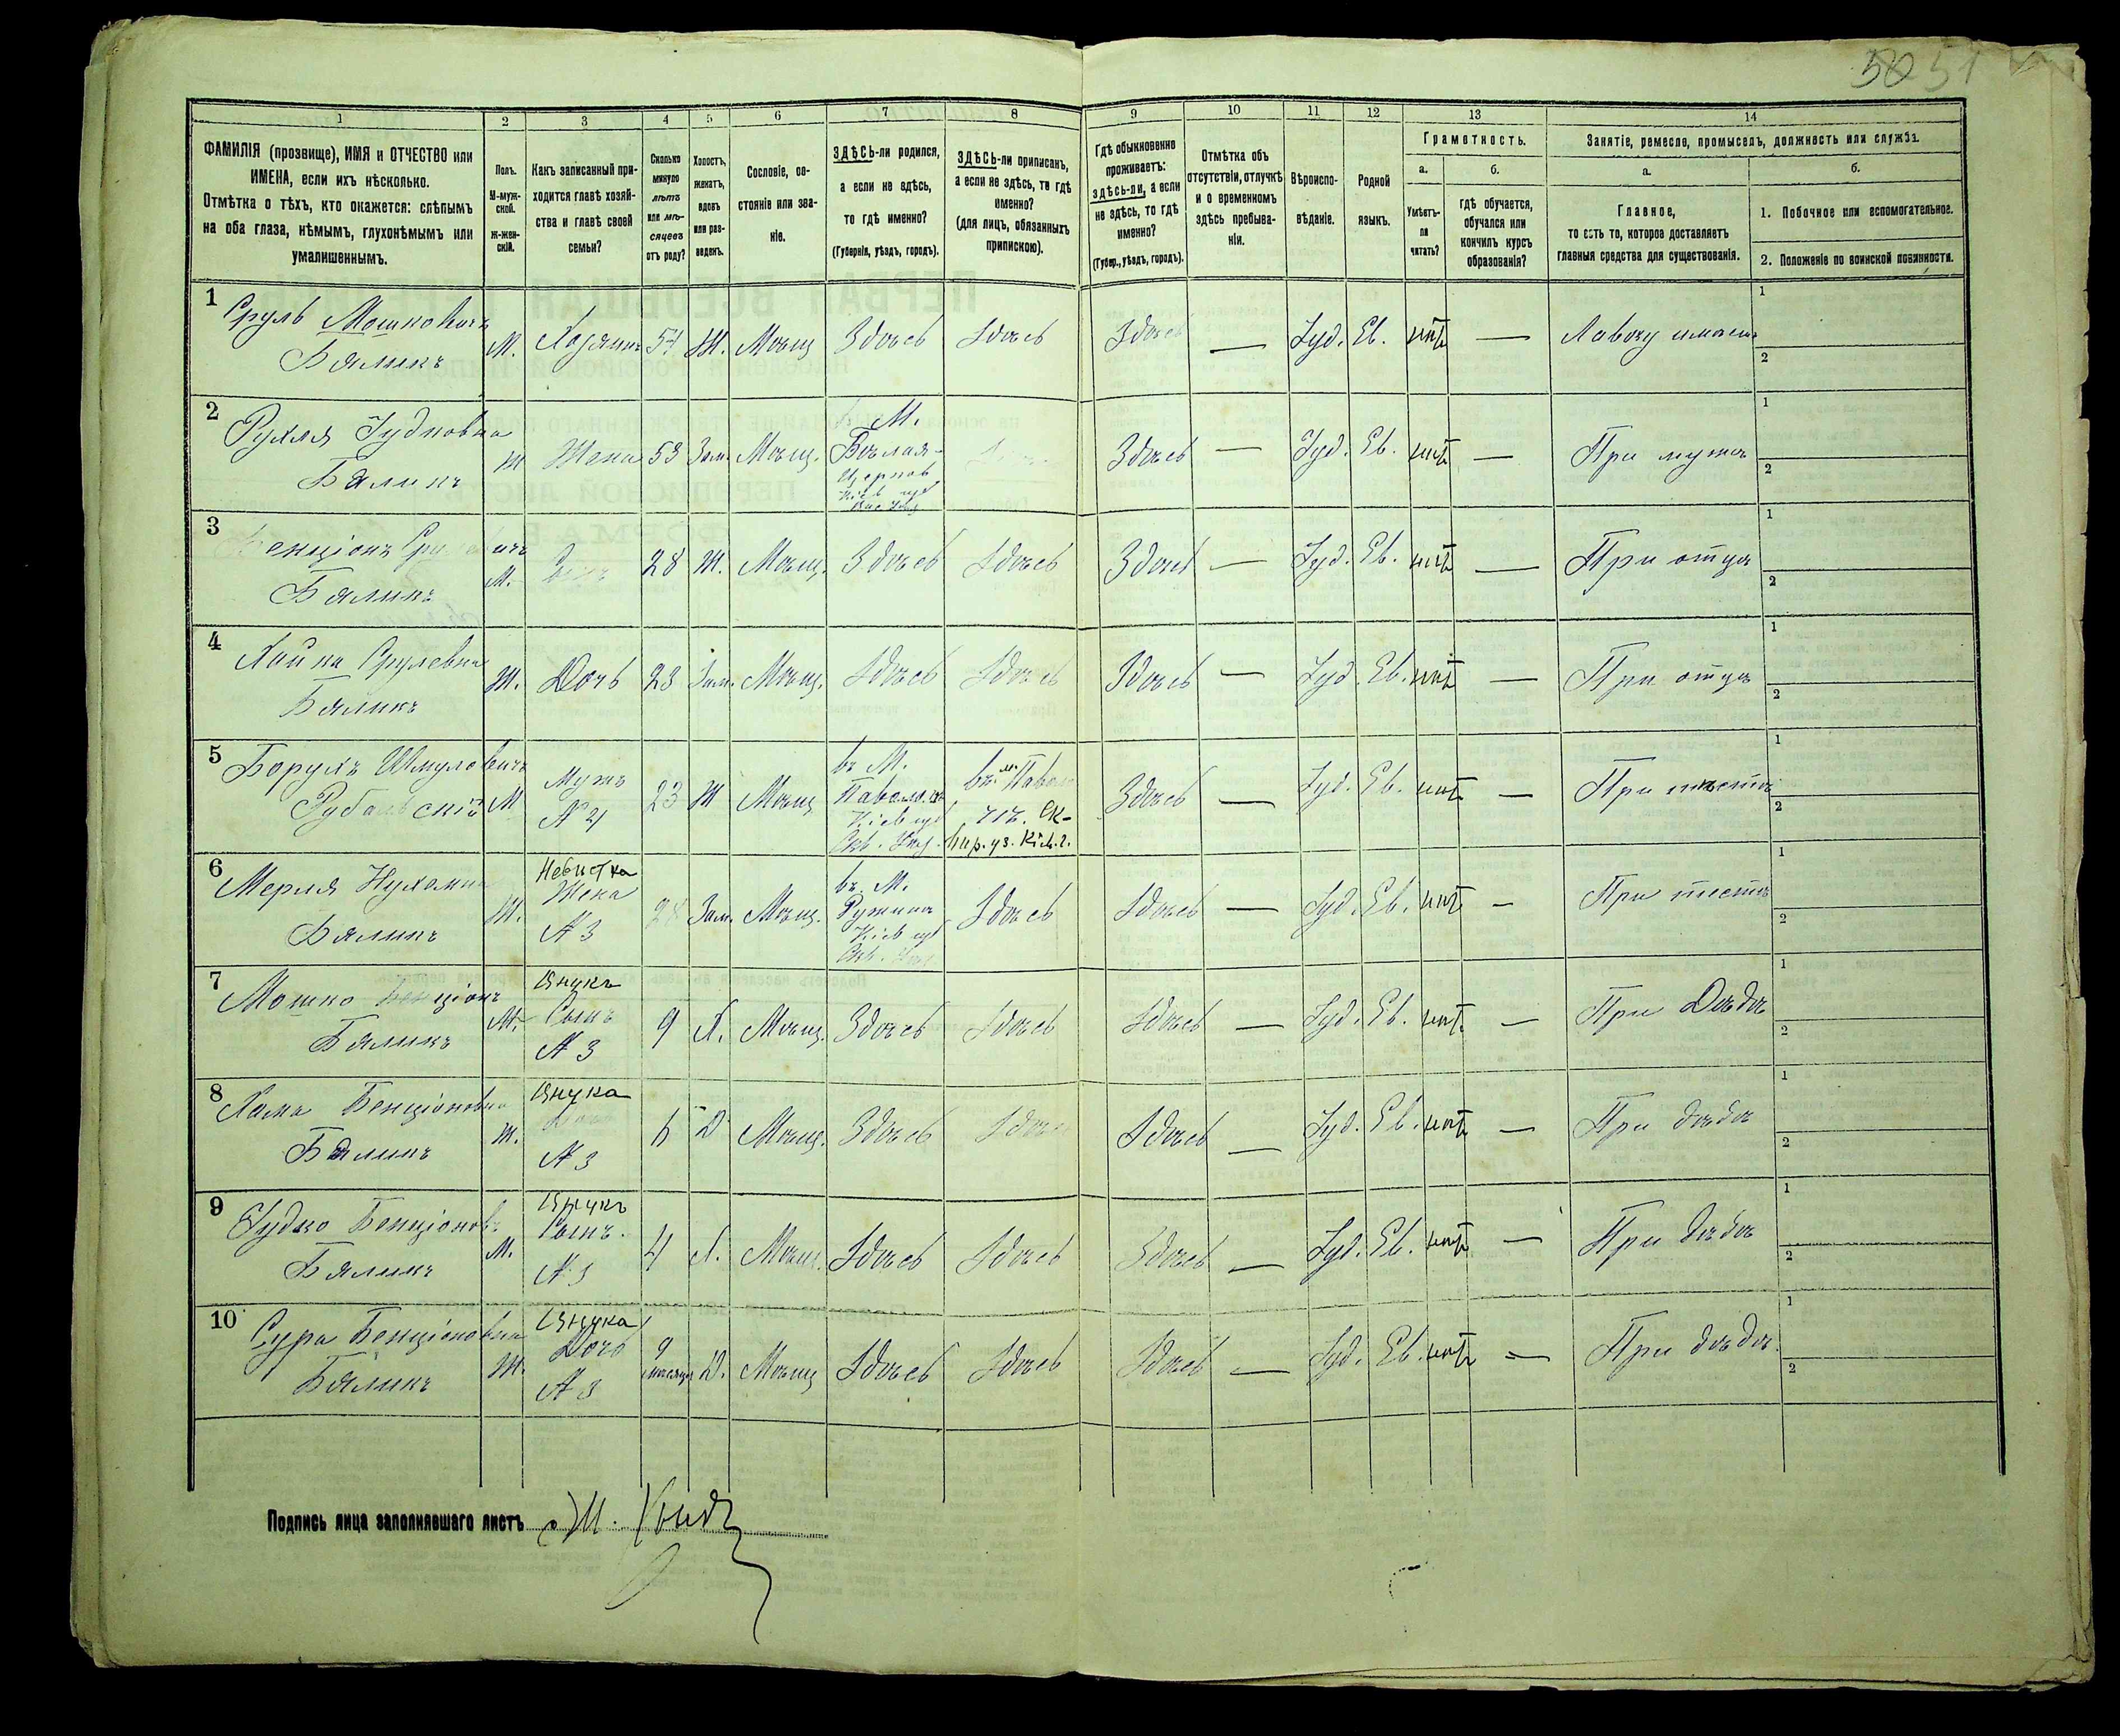 50 51
1 2 3 4 5 6 7 8 9 10 11 12 13 14
ФАМИЛІЯ (прозвище), ИМЯ и ОТЧЕСТВО или
ИМЕНА, если ихъ нѣсколько.
Отмѣтка о тѣхъ, кто окажется: слѣпымъ
на оба глаза, нѣмымъ, глухонѣмымъ или
умалишеннымъ.
Полъ.
М-муж-
ской.
Ж-жен-
скій.
Какъ записанный при-
ходится главѣ хозяй-
ства и главѣ своей
семьи?
Сколько
минуло
лѣтъ
или мѣ-
сяцевъ
отъ роду?
Холостъ,
женатъ,
вдовъ
или раз-
веденъ.
Сословіе, со-
стояніе или зва-
ніе.
ЗДѢСЬ-ли родился,
а если не здѣсь,
то гдѣ именно?
(Губернія, уѣздъ, городъ).
ЗДѢСЬ-ли приписанъ,
а если не здѣсь, то гдѣ
именно?
(для лицъ, обязанныхъ
припискою).
Гдѣ обыкновенно
проживаетъ:
здѣсь-ли, а если
не здѣсь, то гдѣ
именно?
(Губер., уѣздъ, городъ).
Отмѣтка объ
отсутствіи, отлучкѣ
и о временномъ
здѣсь пребыва-
ніи.
Вѣроиспо-
вѣданіе.
Родной
языкъ.
Грамотность.
а.
Умѣетъ-
ли
читать?
б.
гдѣ обучается,
обучался или
кончилъ курсъ
образованія?
Занятіе, ремесло, промыселъ, должность или служба.
а.
Главное,
то есть то, которое доставляетъ
главныя средства для существованія.
б.
1. Побочное или вспомогательное.
2. Положеніе по воинской повинности.
1 Сруль Мошковичъ
Бяликъ
М. Хозяинъ 54 Ж. Мѣщ Здѣсь Здѣсь Здѣсь — Іуд. Ев. нѣтъ — Лавочку имѣетъ
1
2
2 Рухля Іудковна
Бяликъ
Ж Жена 53 Зам. Мѣщ.
М.
Бѣлая-
Церковь
Кіев губ
Здѣсь — Іуд. Ев. нѣтъ — При мужѣ
1
2
3 Бенціонъ
Бяликъ
М. 28 Ж. Мѣщ. Здѣсь Здѣсь Здѣсь — Іуд. Ев. нѣтъ — При отцѣ
1
2
4 Хайка Срулевна
Бяликъ
Ж. Дочь 23 Зам. Мѣщ. Здѣсь Здѣсь Здѣсь — Іуд. Ев. нѣтъ — При отцѣ
1
2
5 Борухъ Шмулевичъ
М Мужъ
№ 4
23 Ж Мѣщ
въ М.
Кіев губ
Скв. Уѣз.
въ м. Павол
чѣ. Ск-
вир. уз. Кіев. г.
Здѣсь — Іуд. Ев. нѣтъ — При тестѣ
1
2
6 Мерля Нухимна
Бяликъ
Ж. Невистка
Жена
№ 3
Зам. Мѣщ.
въ М.
Ружинъ
Кіев губ
Скв. Уѣз
Здѣсь Здѣсь — Іуд. Ев. нѣтъ — При тестѣ
1
2
7 Мошко Бенціонъ
Бяликъ
М. Внукъ
Сынъ
№ 3
9 Х. Мѣщ. Здѣсь Здѣсь Здѣсь — Іуд. Ев. нѣтъ — При Дѣдѣ
1
2
8 Бенціоновна
Бяликъ
Ж. Внука
№ 3
6 Д Мѣщ. Здѣсь Здѣсь Здѣсь — Іуд. Ев. нѣтъ — При дѣдѣ
1
2
9 Юдко Бенціонов.
Бяликъ
М. Внукъ
Сынъ.
№ 3
4 Х. Мѣщ. Здѣсь Здѣсь Здѣсь — Іуд. Ев. нѣтъ — При дѣдѣ
1
2
10 Сура Бенціоновна
Бяликъ
Ж. Внука
Дочь
№ 3
9
мѣсяцъ
Д. Мѣщ Здѣсь Здѣсь Здѣсь — Іуд. Ев. нѣтъ — При дѣдѣ.
1
2
Подпись лица заполнявшаго листъ